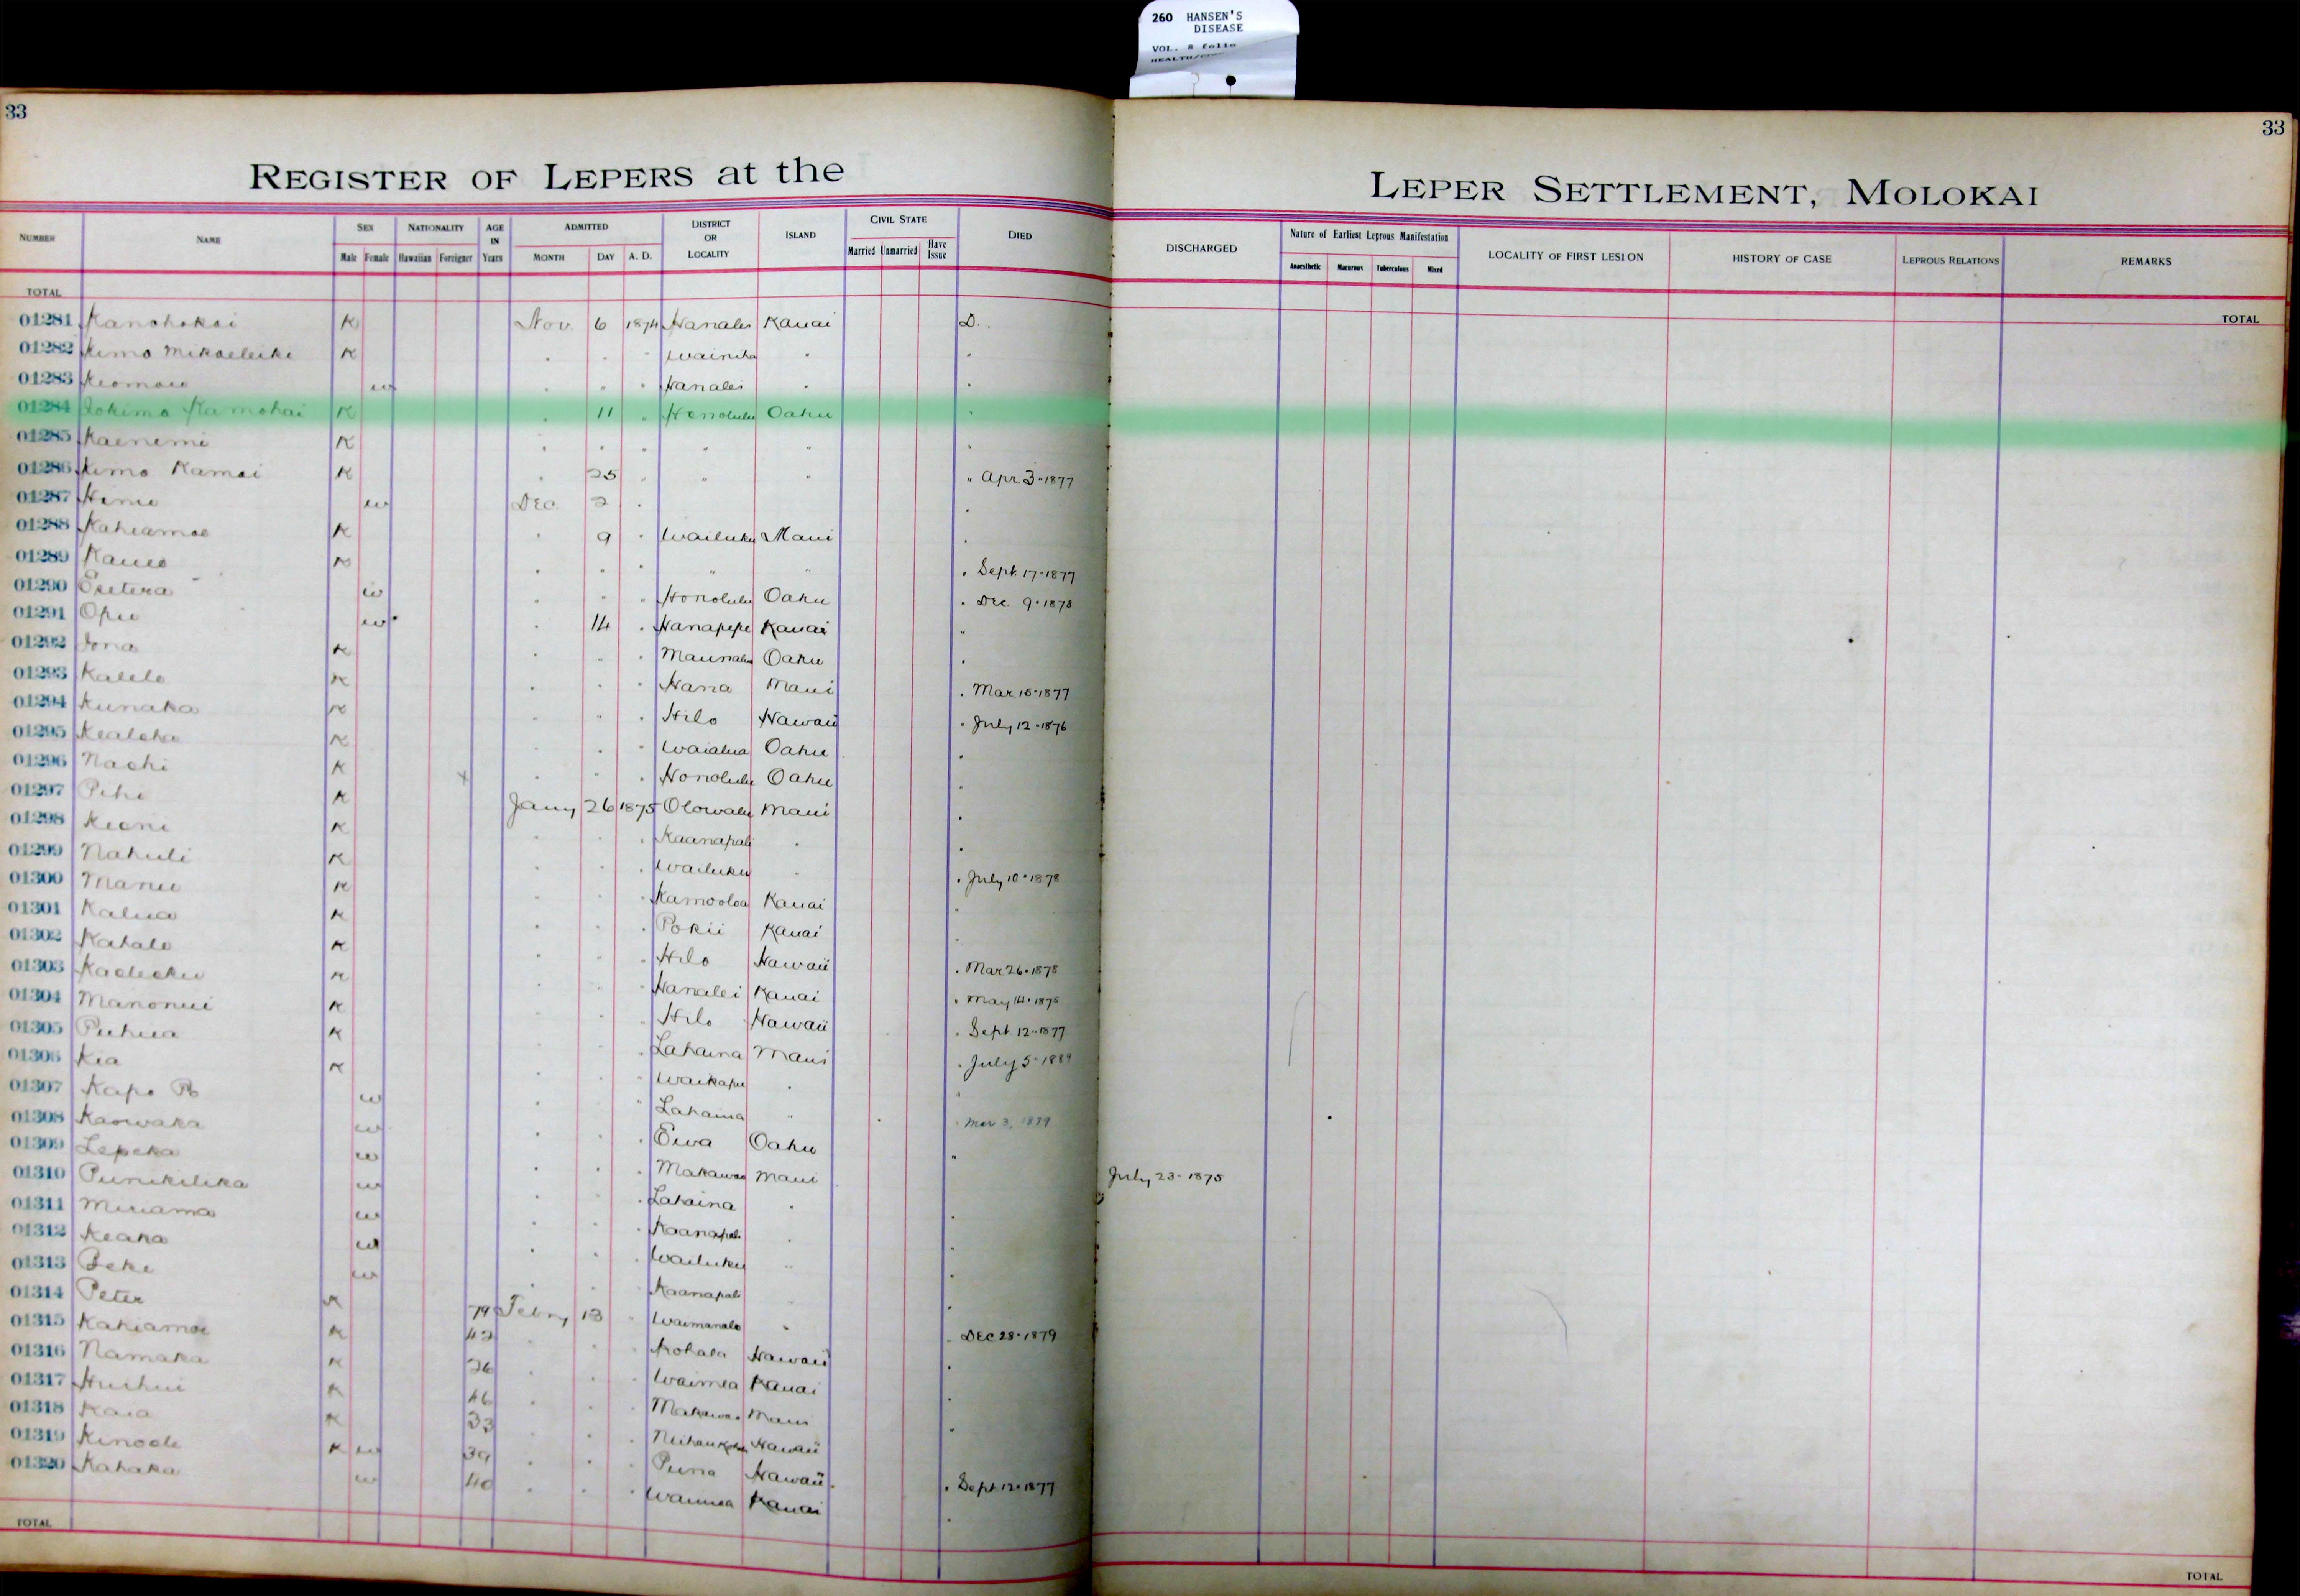 260 HANSEN'S
DISEASE
VOL. 8 folio
33
33
REGISTER OF LEPERS at the LEPER SETTLEMENT, MOLOKAI
NUMBER NAME SEX NATIONALITY AGE IN Years ADMITTED DISTRICT OR LOCALITY ISLAND CIVIL STATE DIED DISCHARGED Nature of Earliest Leprous Manifestation LOCALITY OF FIRST LESION HISTORY OF CASE LEPROUS RELATIONS REMARKS
Male Female Hawaiian Foreigner MONTH DAY A. D. Married Unmarried Have Issue Anaesthetic Macurous Tuberculous Mixed
TOTAL TOTAL
01281 Kanohokai K Nov. 6 1874 Hanalei Kauai D.
01282 Kimo Mikaeleike K " " " Wainiha " "
01283 Keomaie w " " " Hanalei " "
01284 Iokimo Kamohai K " 11 " Honolulu Oahu "
01285 Kaenemi K " " " " " "
01286 Kimo Kamai K " 25 " " " " Apr 3-1877
01287 w Dec 2 " "
01288 Kahiamoe K " 9 " Wailuku Maui "
01289 Kaueo K " " " " " " Sept. 17-1877
01290 w " " " Honolulu Oahu " Dec. 9-1878
01291 Opu w " 14 " Hanapepe Kauai "
01292 Iona K " " " Oahu "
01293 Kalelo K " " " Hana Maui " Mar 15-1877
01294 Kunaka K " " " Hilo Hawaii " July 12-1876
01295 Kealoha K " " " Waialua Oahu "
01296 Naohi K " " " Honolulu Oahu "
01297 Pihe K Jany 26 1875 Olowalu Maui "
01298 Keoni K " " " Kaanapali " "
01299 Nahuli K " " " Wailuku " " July 10-1878
01300 Manu K " " " Kamooloa Kauai "
01301 Kalua K " " " Pokii Kauai "
01302 Kahalo K " " " Hilo Hawaii " Mar 26-1878
01303 K " " " Hanalei Kauai " May 14-1875
01304 Manonui K " " " Hilo Hawaii " Sept 12-1877
01305 Puhua K " " " Lahaina Maui " July 5-1889
01306 Kia K " " " Waikapu " "
01307 Kapo w " " " Lahaina " " Mar 3, 1879
01308 Kaowaka w " " " Ewa Oahu "
01309 Lepeka w " " " Makawao Maui July 23-1875
01310 Punikilika w " " " Lahaina " "
01311 Miriama w " " " Kaanapali " "
01312 Keaka w " " " Wailuku " "
01313 Beke w " " " Kaanapali " "
01314 Peter K 79 Febry 13 " Waimanalo " " Dec 28-1879
01315 Kahiamoe K 42 " " " Kohala Hawaii "
01316 Namaka K 26 " " " Waimea Kauai "
01317 Huihui K 46 " " " Makawao Maui "
01318 Kaia K 33 " " " Hawaii
01319 Kinoole K w 39 " " " Puna Hawaii " Sept 12-1877
01320 Kahaka w 40 " " " Waimea Kauai "
TOTAL TOTAL